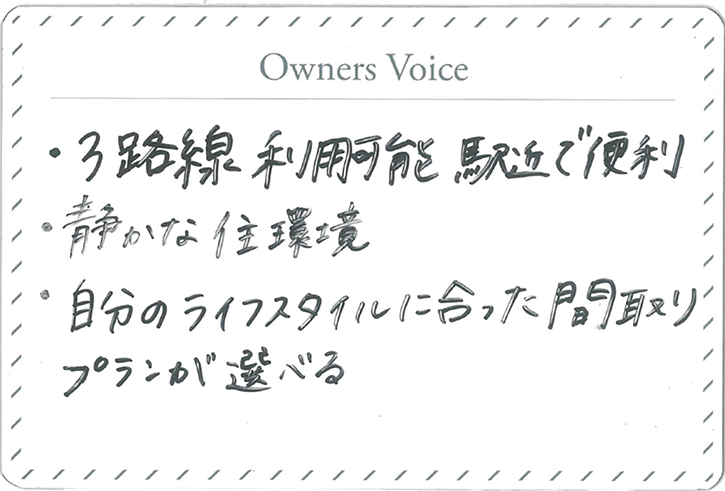 Owners Voice
・3路線利用可能 駅近で便利
・静かな住環境
・自分のライフスタイルに合った間取り
プランが選べる